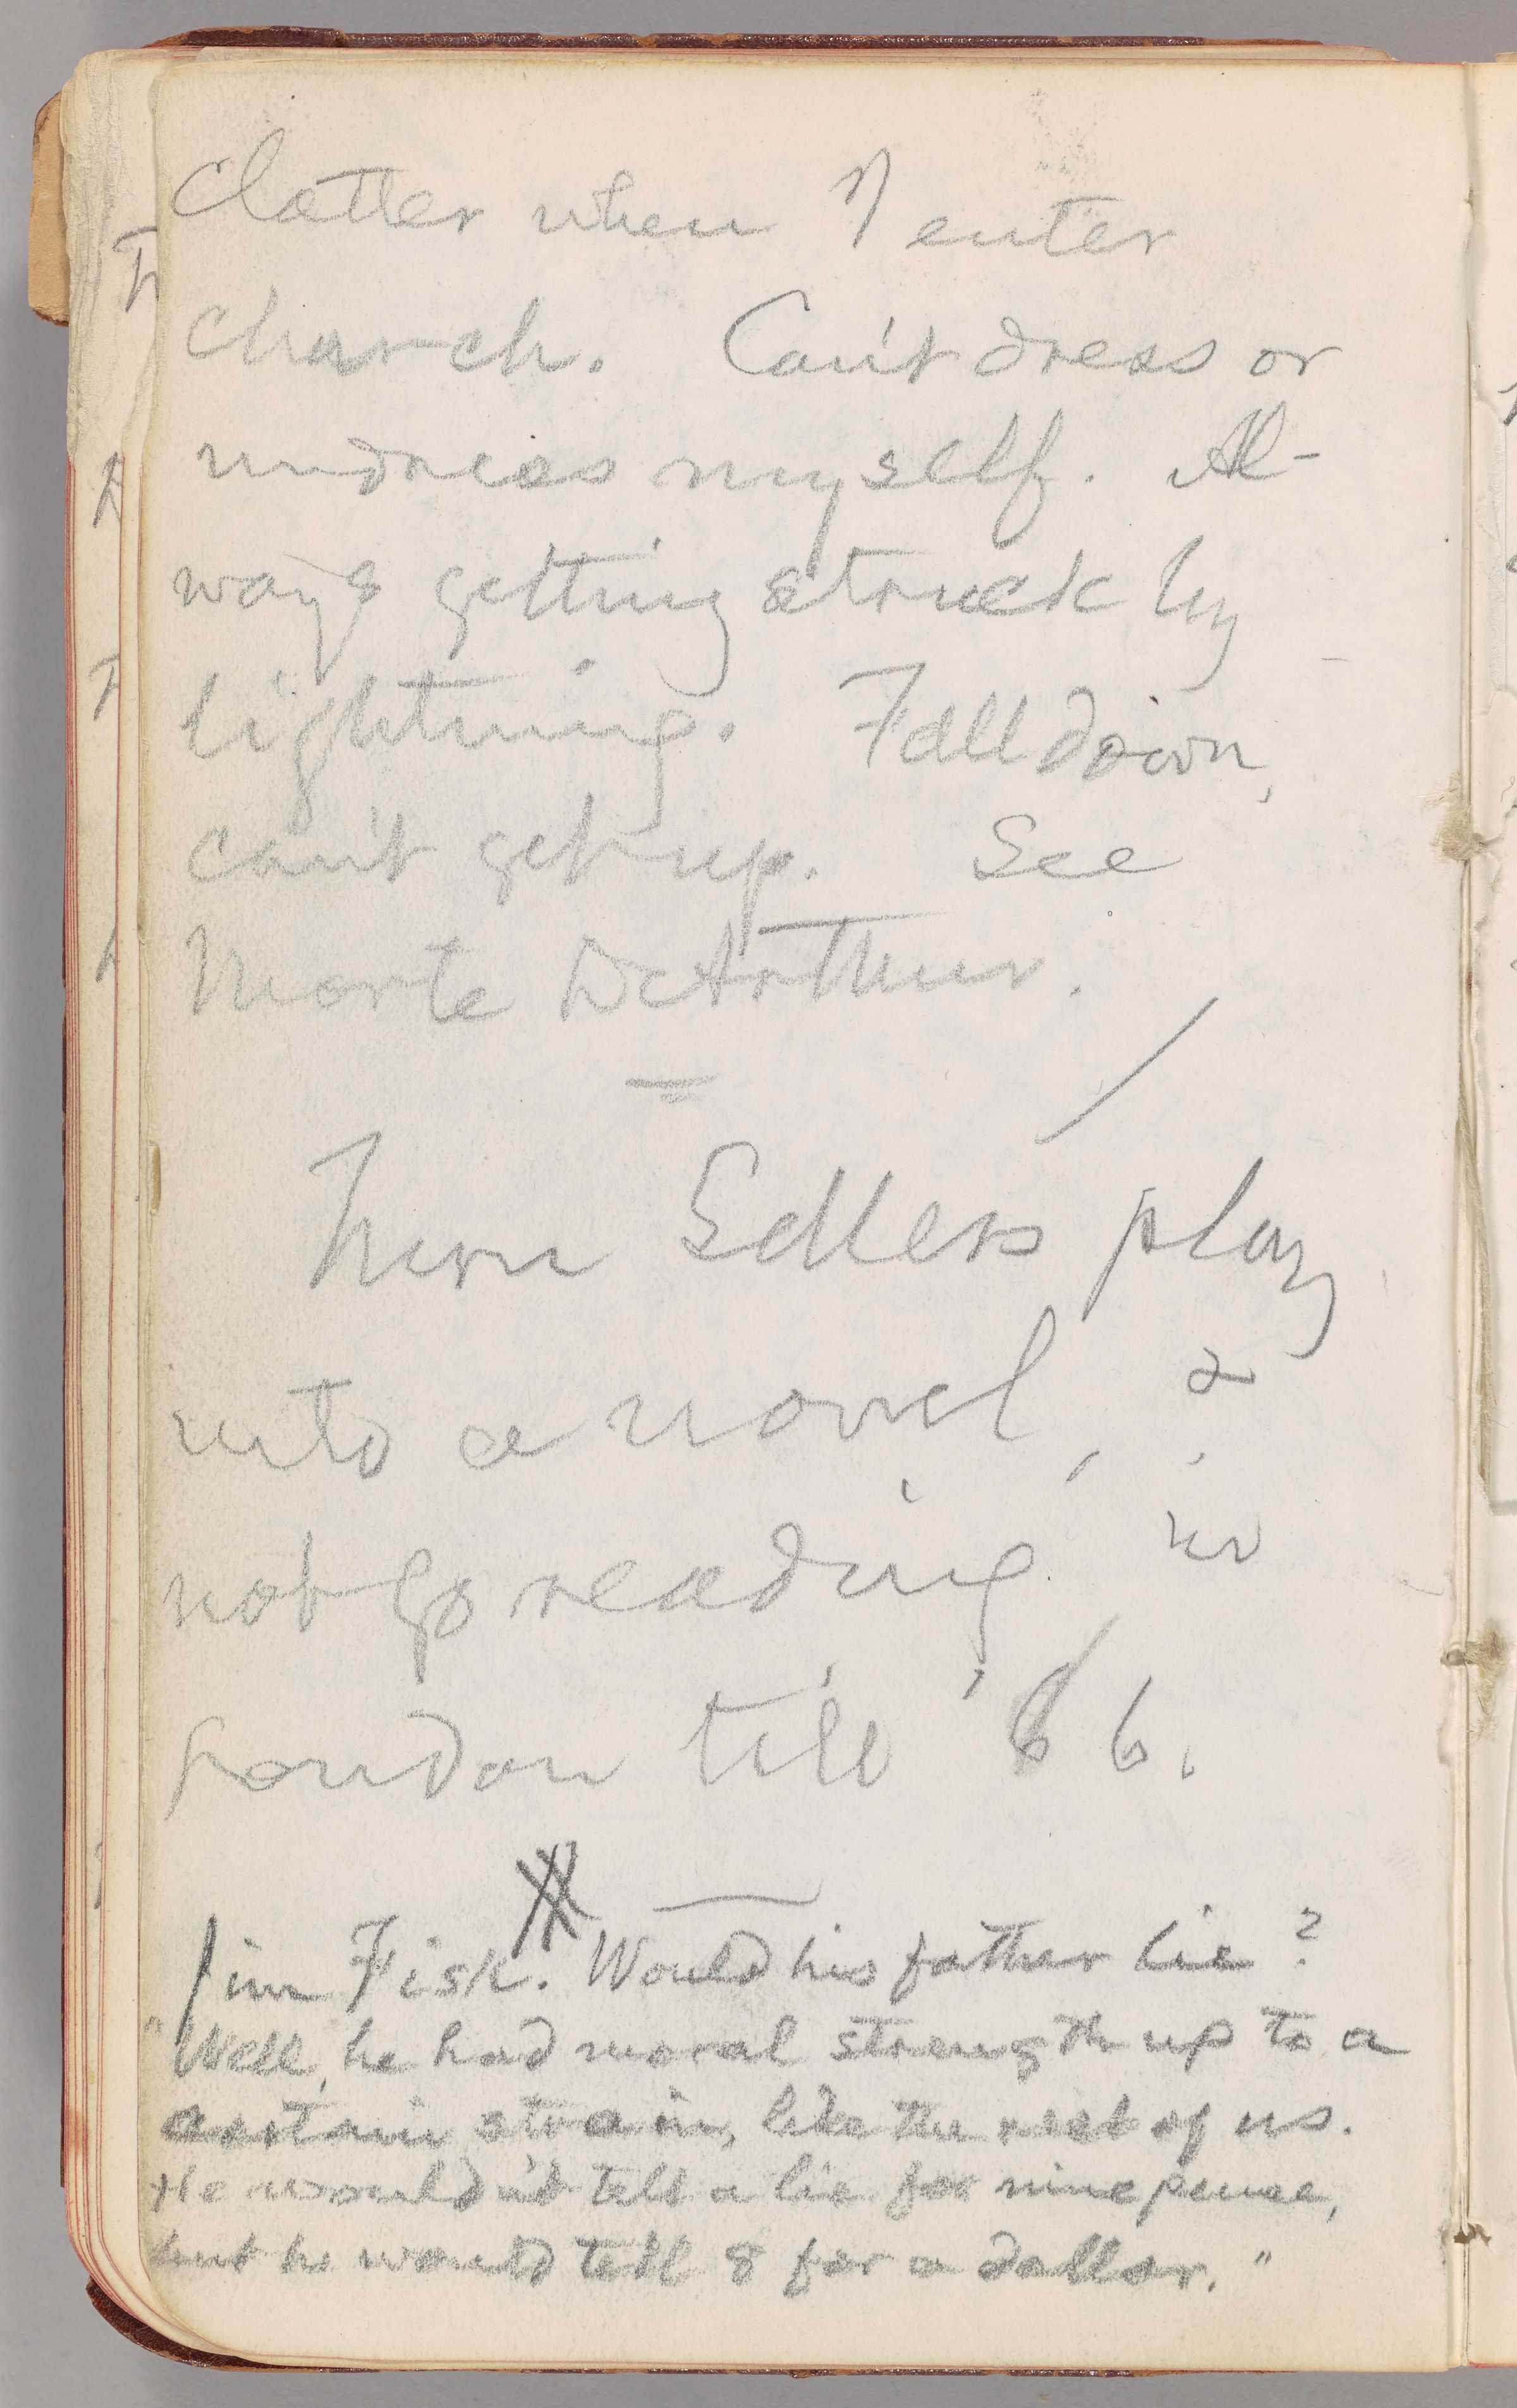 clatter when I enter
church. Can't dress or
undress myself. Al-
ways getting struck by
lightning. Fall down,
can't get up. See
Morte DeArthur.
Turn Sellers play
into a novel, &
not go reading in
London till '86.
Jim Fisk. Would his father lie?
"Well, he had moral strength up to a
certain strain, like the rest of us.
He wouldn't tell a lie for nine pence,
but he would tell 8 for a dollar."